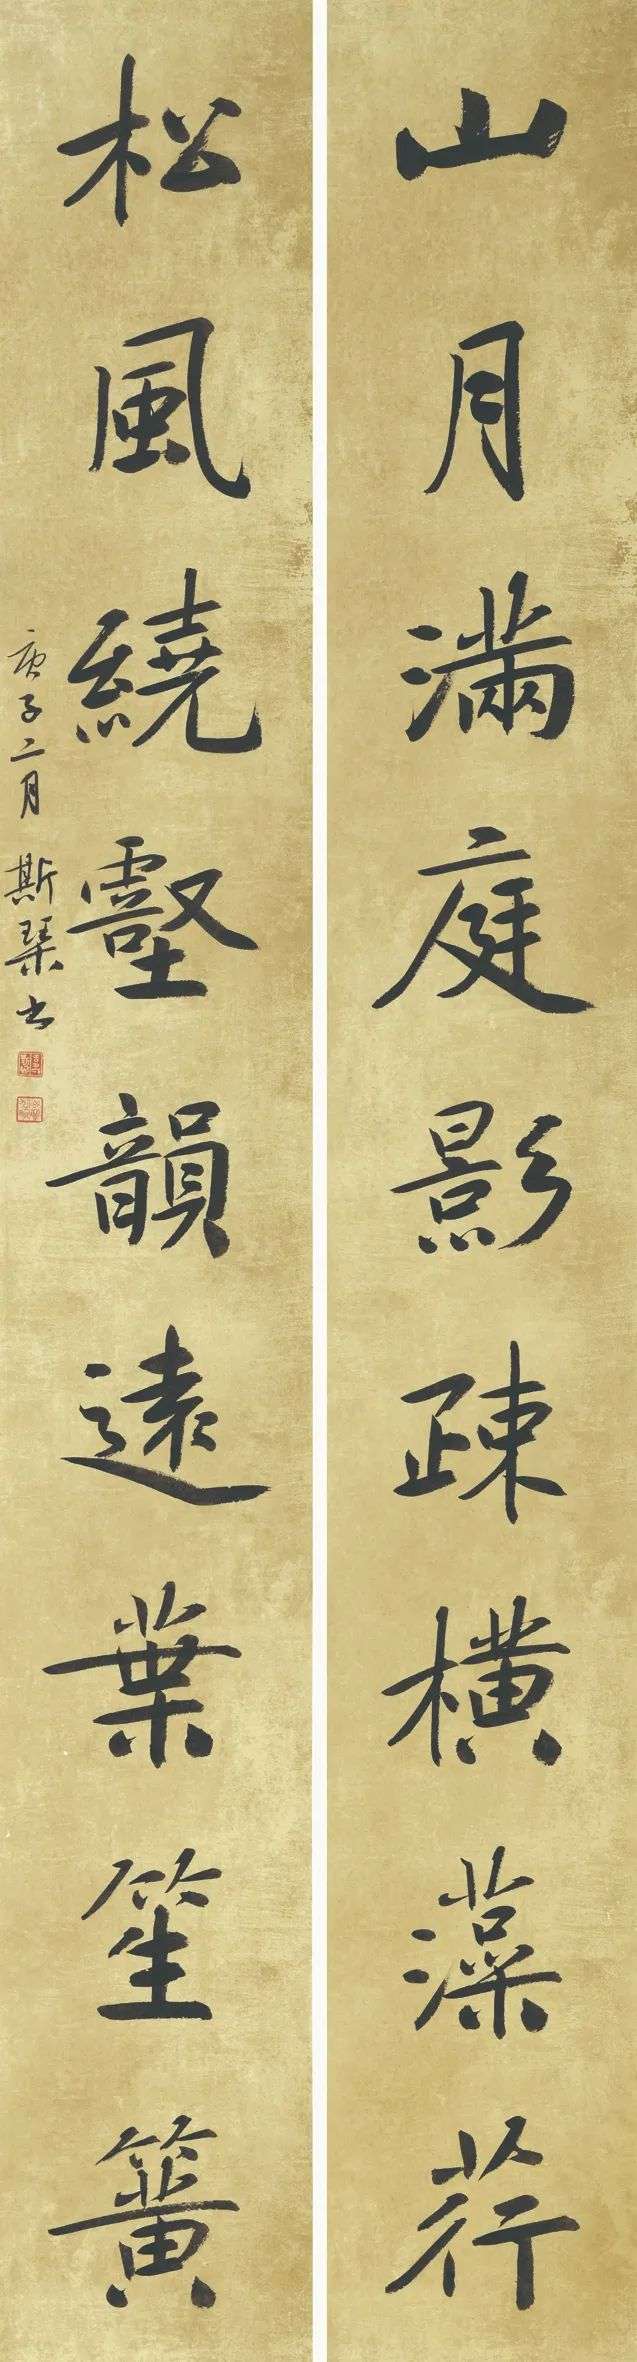 山月滿庭影疎橫藻荇
松風繞壑韻遠葉笙簧
庚子二月 斯琹書